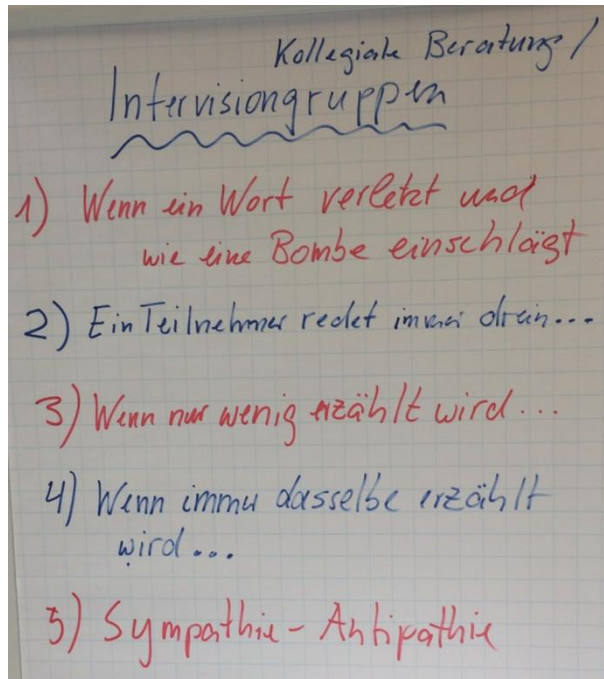 Kollegiale Beratung /
Intervisiongruppen
1) Wenn ein Wort verletzt und
wie eine Bombe einschlägt
2) Ein Teilnehmer redet immer drein...
3) Wenn nur wenig erzählt wird...
4) Wenn immer dasselbe erzählt
wird...
5) Sympathie - Antipathie